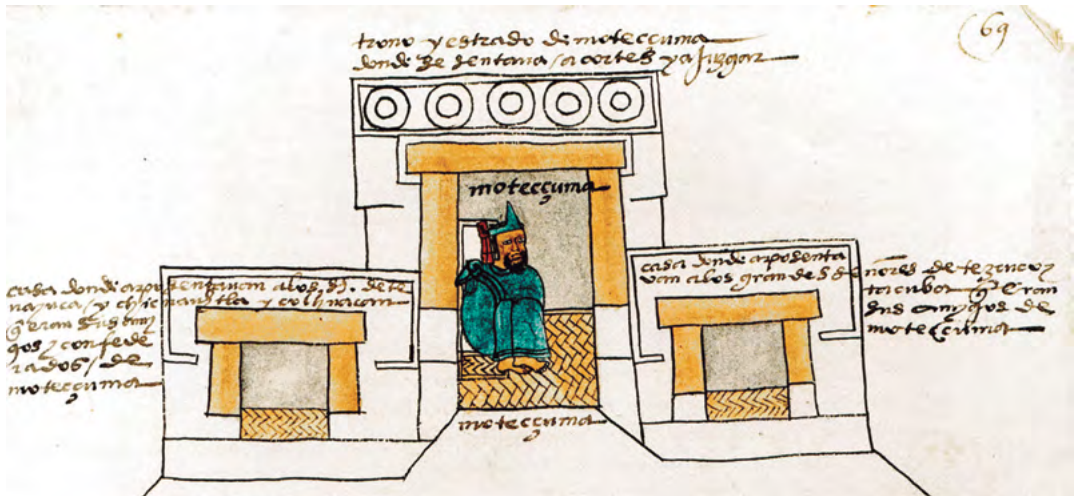 69
trono y estrado de motecçuma
donde se sentaua / a cortes y a juzgar
motecçuma
casa donde aposentauan a los s̃. de te
nayuca / y chicnauhtla y colhuacan
q̃ eran sus ami
gos y confede
rados / de
motecçuma
casa donde aposenta
uan a los grandes señores de tezcuco y
tacuba q̃ eran
sus amygos de
motecçuma
motecçuma